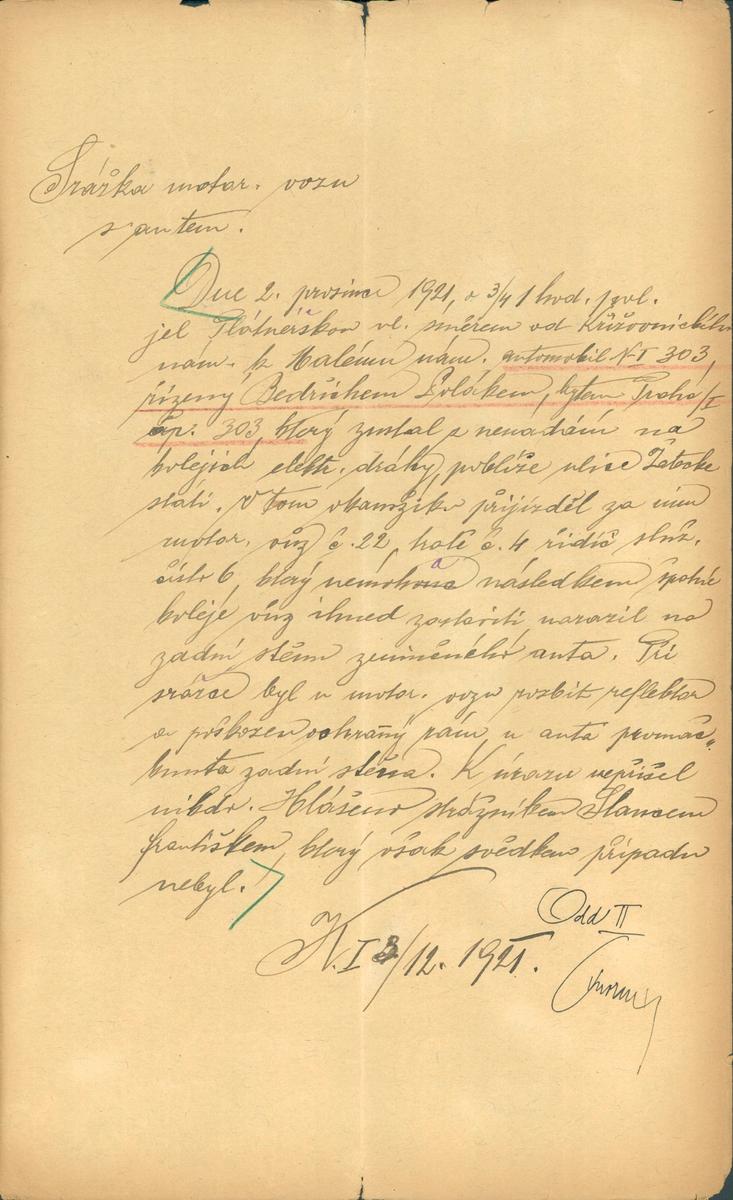 Srážka motor. vozu
s autem.
Dne 2. prosince 1921, o 3/4 1 hod. popol.
jel Plátnéřskou ul. směrem od Křižovnického
nám. k Malému nám. automobil N-I 303,
řízený Bedřichem Polákem, bytem Praha/I
čp. 303, který zůstal z nenadání na
kolejích elektr. dráhy, poblíže ulice Žatecké
státi. V tom okamžiku přijížděl za ním
motor. vůz č. 22, tratě č. 4 řidič služ.
číslo 6, který nemoha následkem špatné
koleje vůz ihned zastaviti narazil na
zadní stěnu zmíněného auta. Při
srážce byl u motor. vozu rozbit reflektor
a poškozen ochraný rám, u auta promáč„
knuta zadní stěna. K úrazu nepřišel
nikdo. Hlášeno strážníkem
Františkem, který však svědkem případu
nebyl.
Odd II
K. I 3/12. 1921.